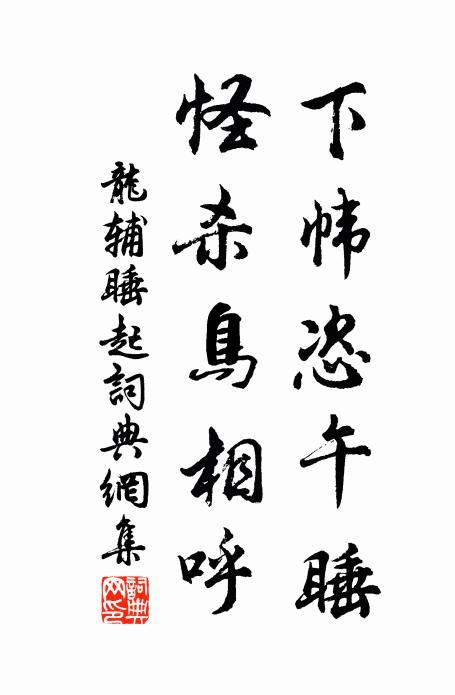 下帏恣午睡
怪杀鳥相呼
龍辅睡起詞典網集
詞典网印